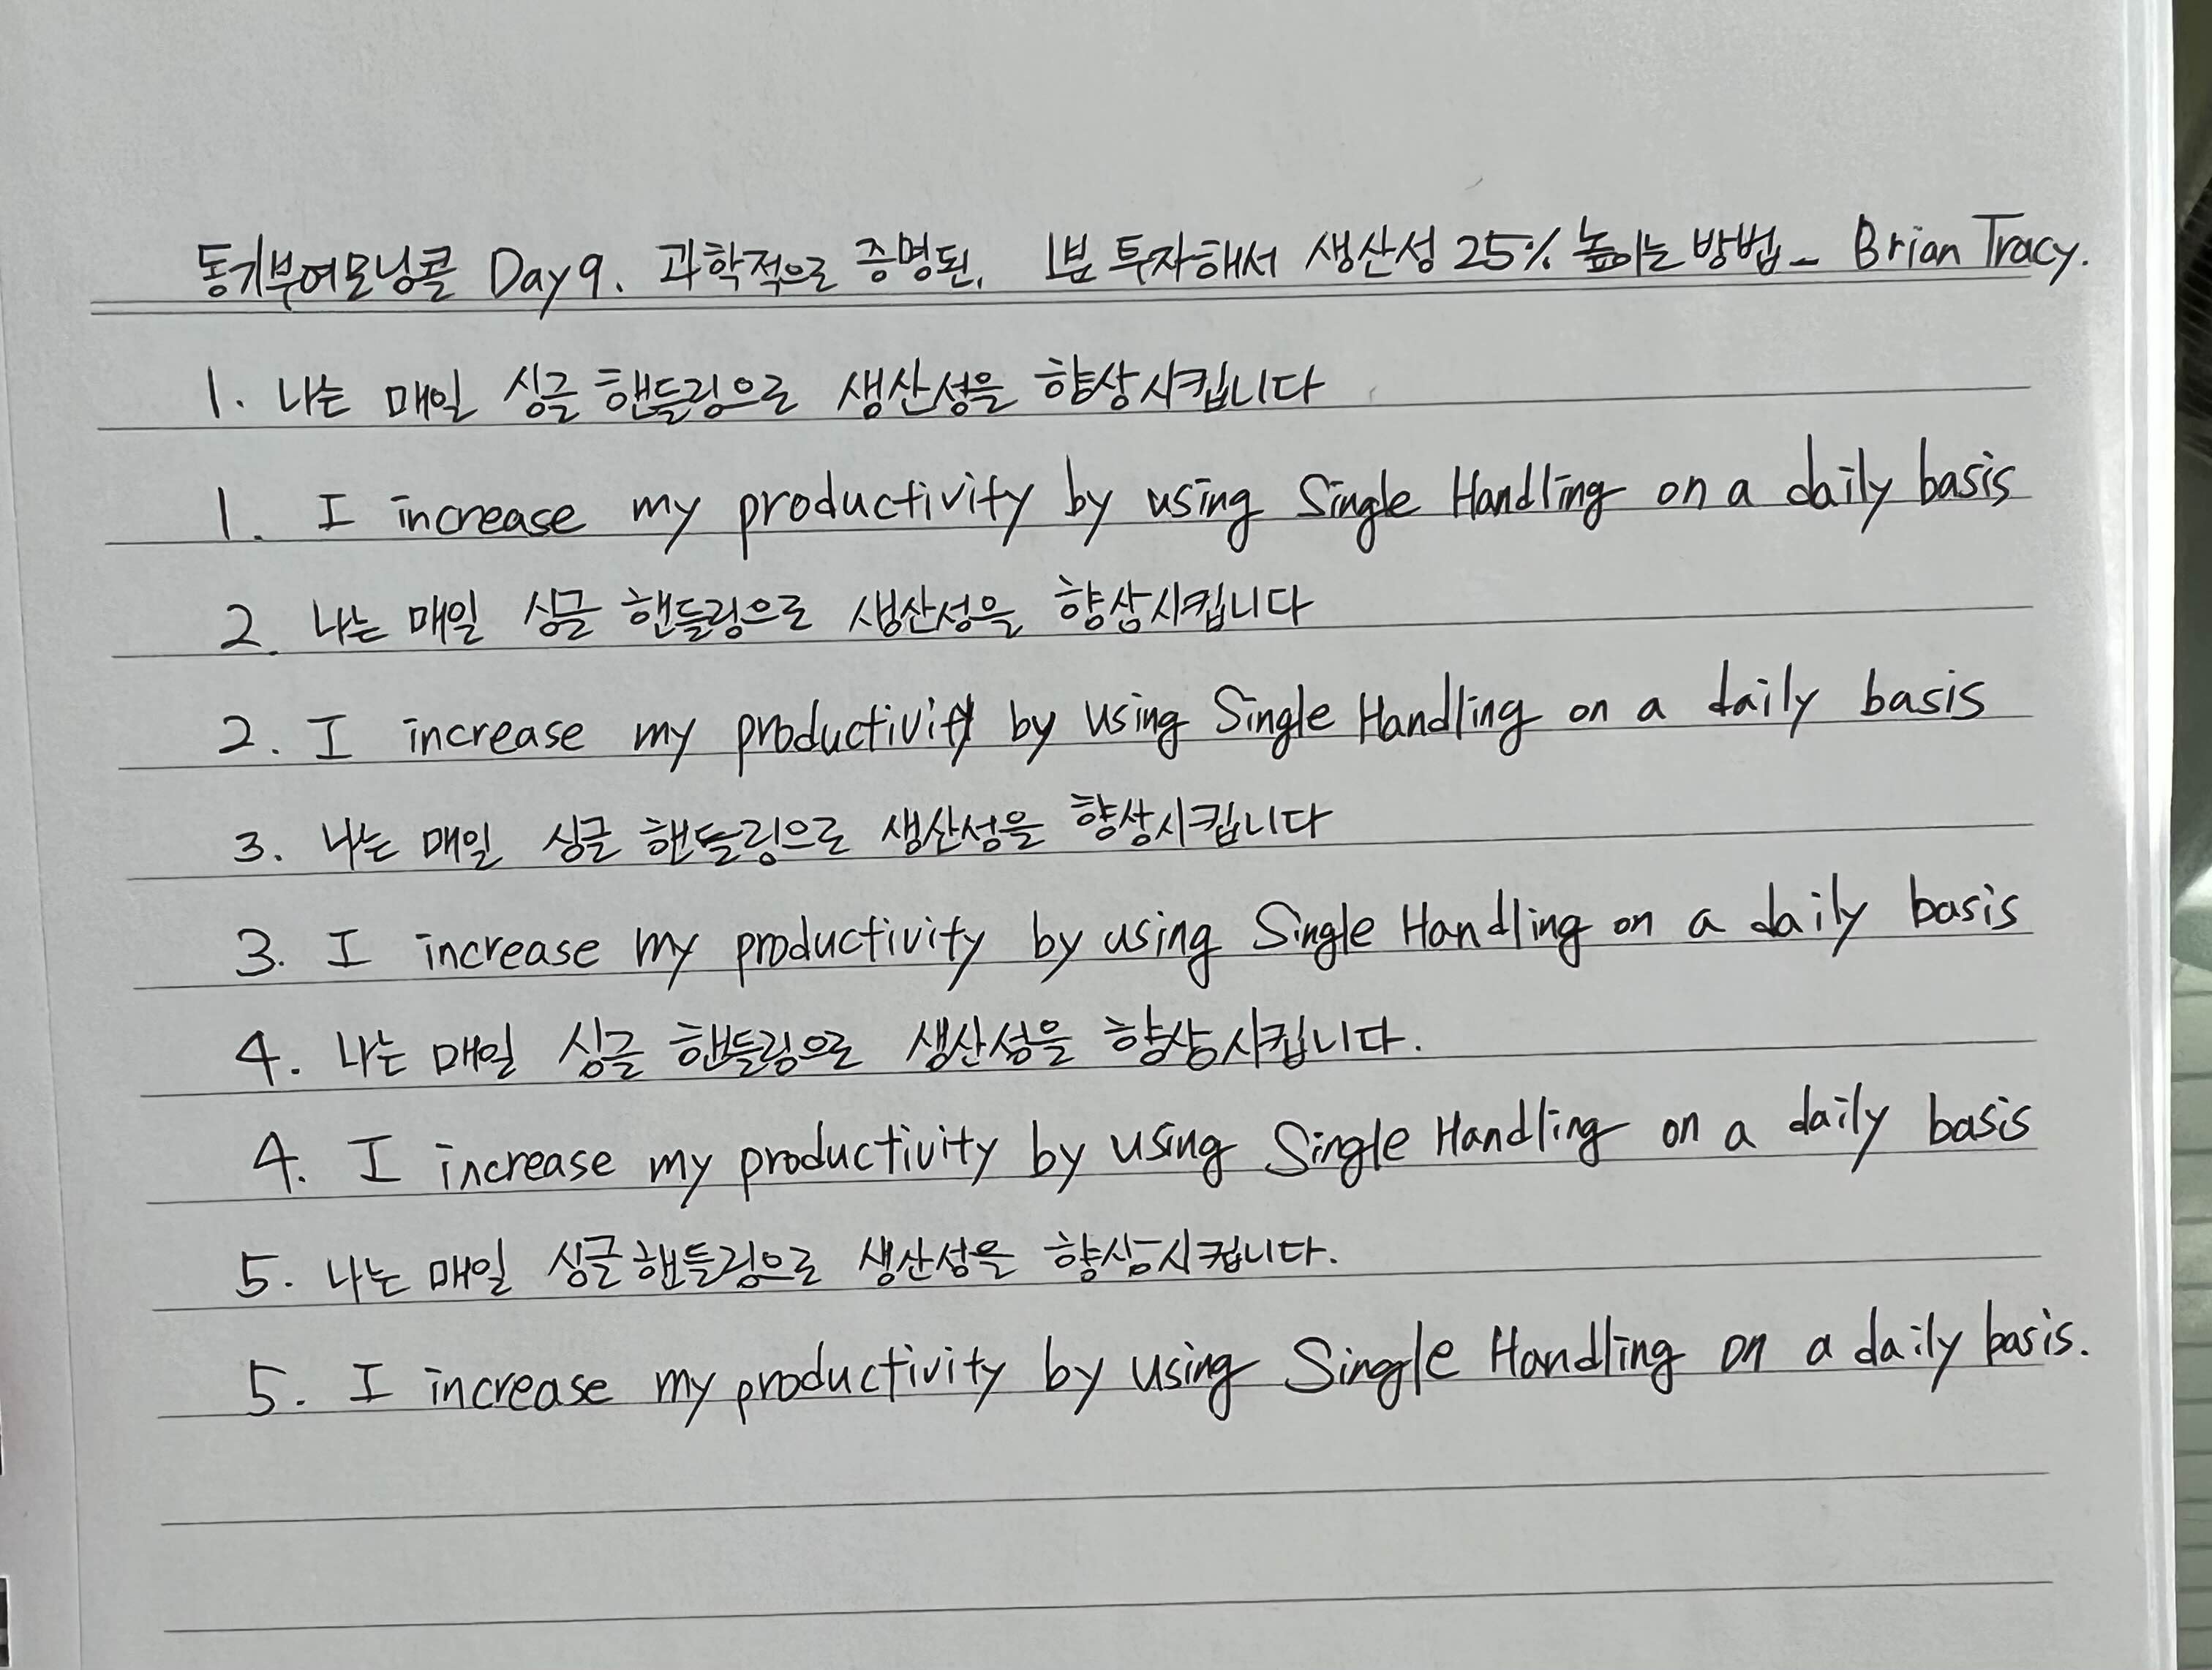 동기부여모닝콜 Day9. 과학적으로 증명된, 1분 투자해서 생산성 25% 높이는 방법 - Brian Tracy.
1. 나는 매일 싱글 핸들링으로 생산성을 향상시킵니다
1. I increase my productivity by using Single Handling on a daily basis
2. 나는 매일 싱글 핸들링으로 생산성을 향상시킵니다
2. I increase my productivity by using Single Handling on a daily basis
3. 나는 매일 싱글 핸들링으로 생산성을 향상시킵니다
3. I increase my productivity by using Single Handling on a daily basis
4. 나는 매일 싱글 핸들링으로 생산성을 향상시킵니다.
4. I increase my productivity by using Single Handling on a daily basis
5. 나는 매일 싱글 핸들링으로 생산성을 향상시킵니다.
5. I increase my productivity by using Single Handling on a daily basis.